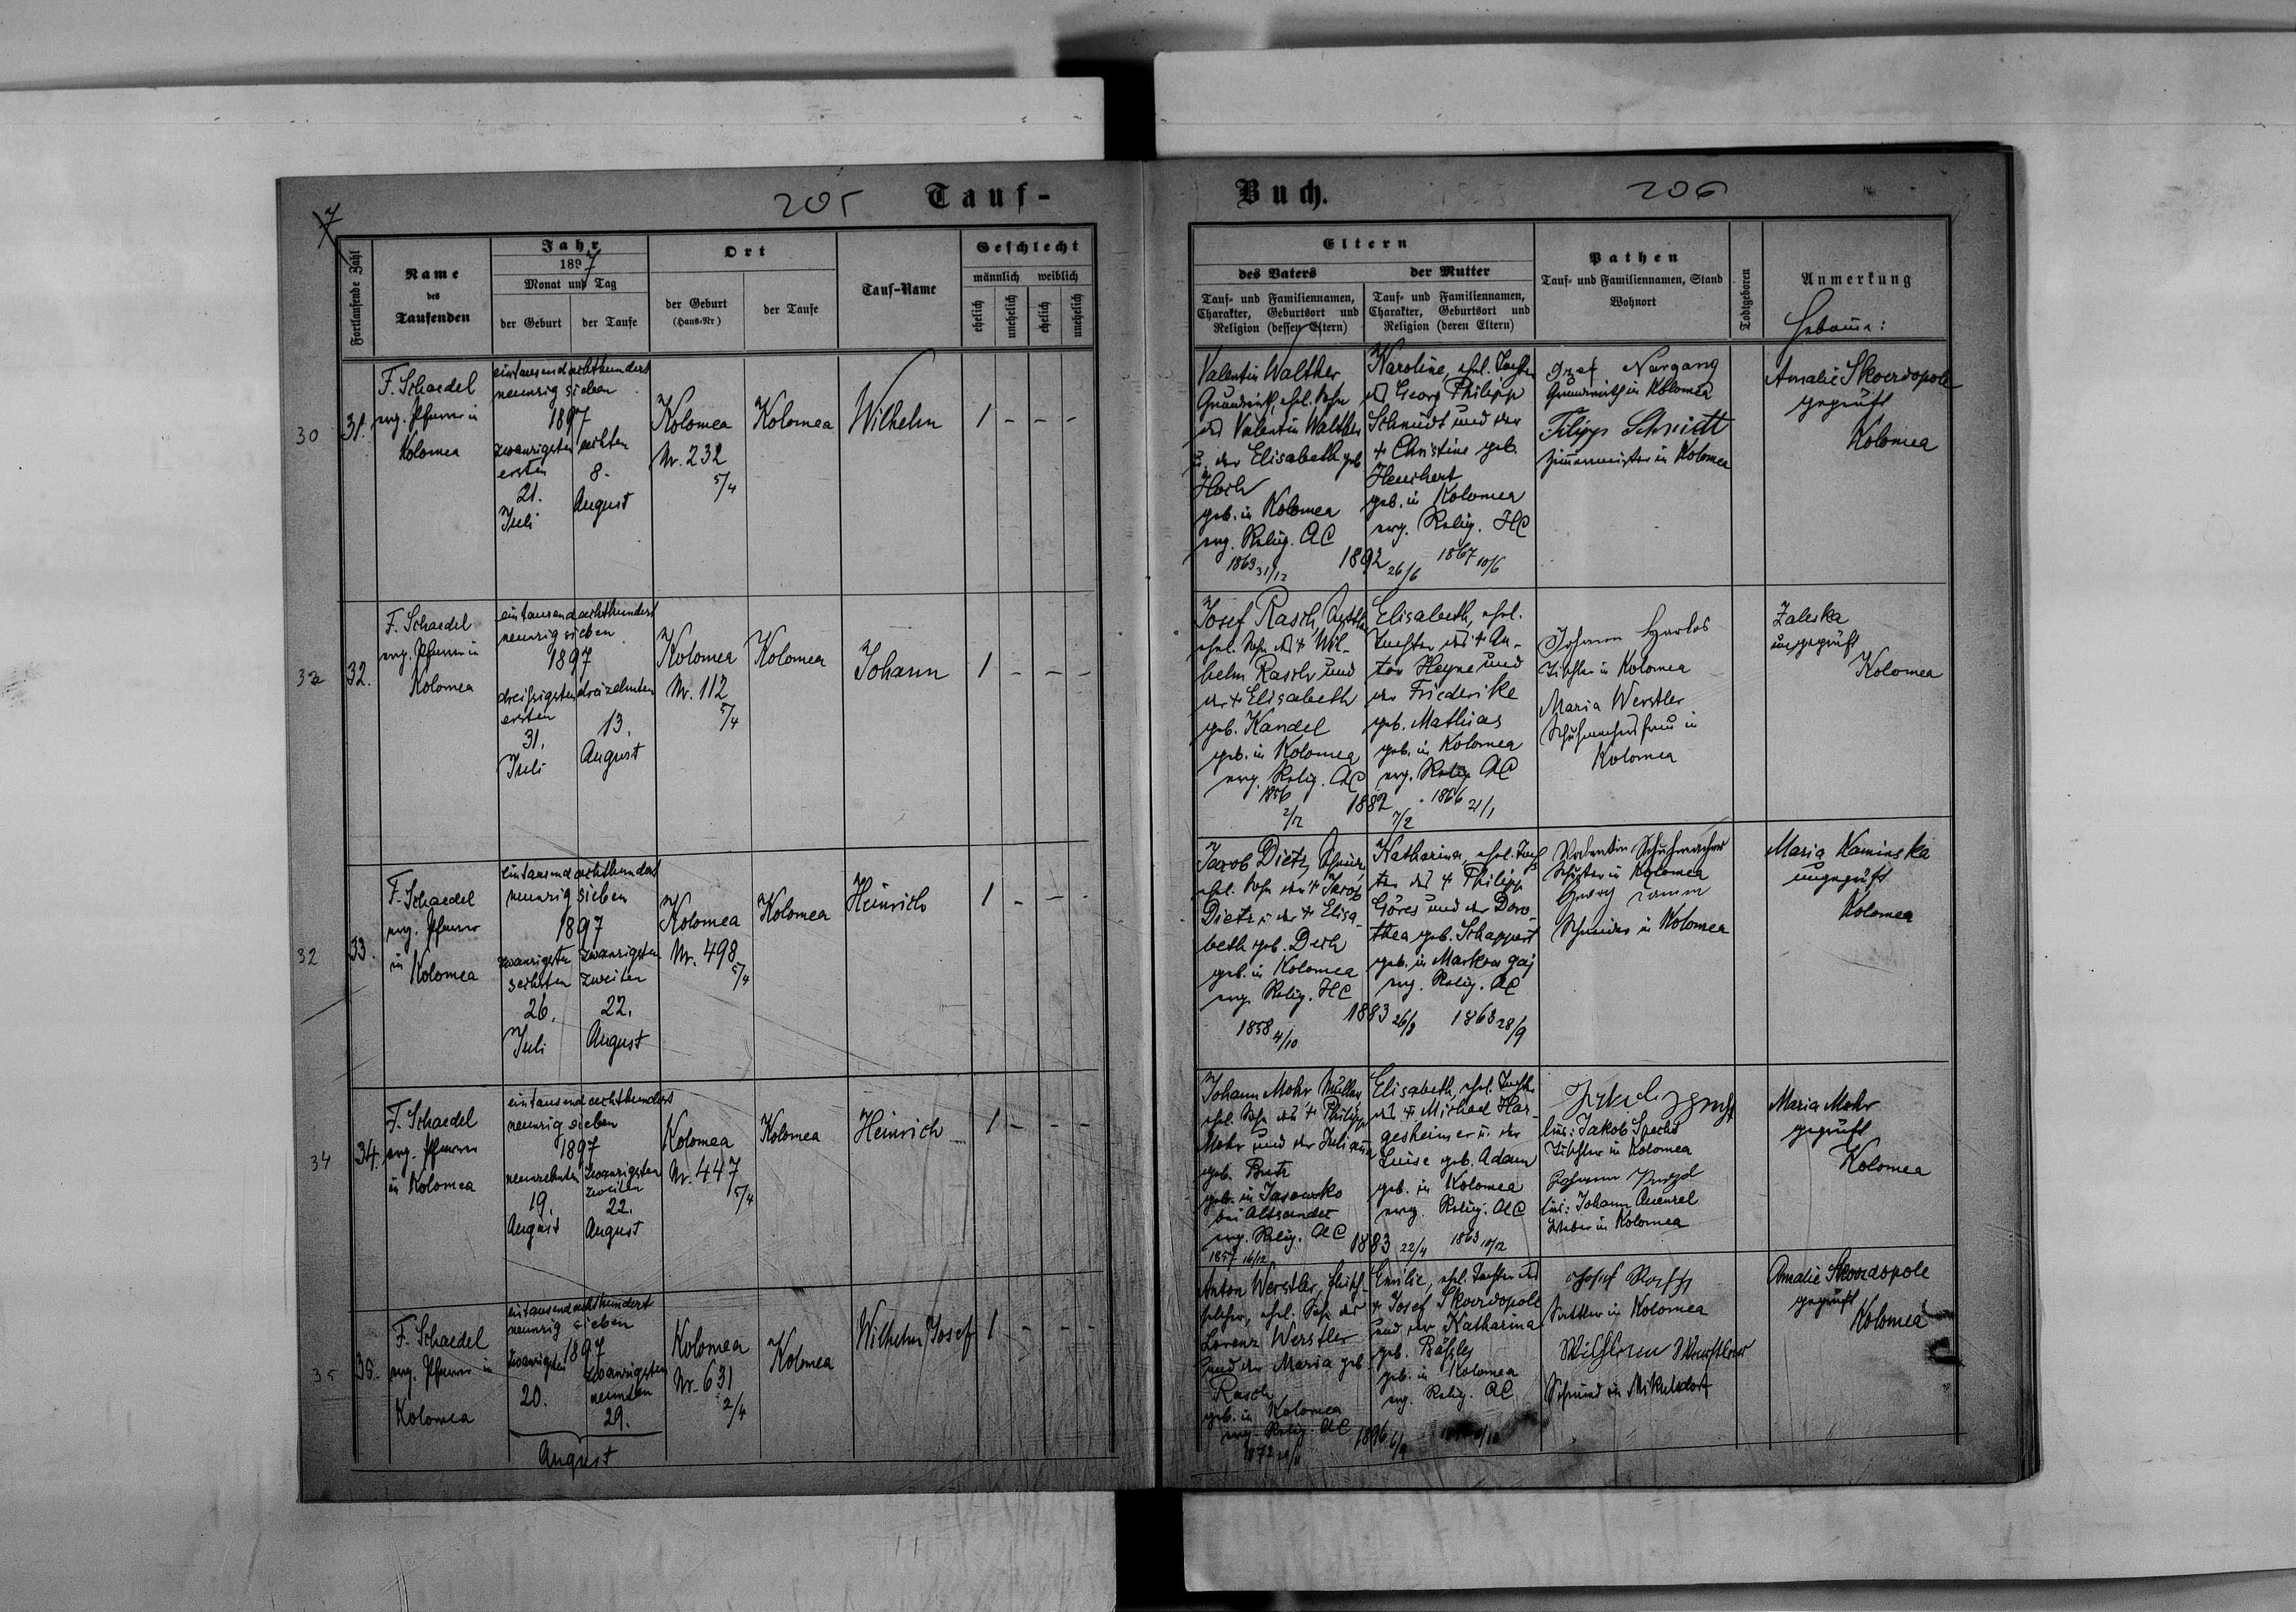 205
Tauf-
7
Fortlaufende Zahl
Name
des
Taufenden
Jahr
1897
Monat und Tag
der Geburt
der Taufe
Ort
der Geburt
(Haus-Nr)
der Taufe
Tauf-Name
Geschlecht
männlich
weiblich
ehelich
unehelich
ehelich
unehelich
30
31.
F. Schaedel
evg. Pfarrer in
Kolomea
eintausendachthundert
neunzig sieben
1897
zwanzigsten
ersten
21.
Juli
achten
8.
August
Kolomea
Nr. 232
5/4
Kolomea
Wilhelm
1 - - -
32
32.
F. Schaedel
evg. Pfarrer in
Kolomea
eintausendachthundert
neunzig sieben
1897
dreißigsten
ersten
31.
Juli
dreizehnten
13.
August
Kolomea
Nr. 112
5/4
Kolomea
Johann
1 - - -
32
33.
F. Schaedel
evg. Pfarrer
in
Kolomea
eintausendachthundert
neunzig sieben
1897
zwanzigsten
sechsten
26.
Juli
zwanzigsten
zweiten
22.
August
Kolomea
Nr. 498
5/4
Kolomea
Heinrich
1 - - -
34
34.
F. Schaedel
evg. Pfarrer
in Kolomea
eintausendachthundert
neunzig sieben
1897
neunzehnten
19.
August
zwanzigsten
zweiten
22.
August
Kolomea
Nr. 447
5/4
Kolomea
Heinrich
1 - - -
35
35.
F. Schaedel
evg. Pfarrer in
Kolomea
eintausendachthundert
neunzig sieben
1897
zwanzigsten
20.
zwanzigsten
neunten
29.
August
Kolomea
Nr. 631
2/4
Kolomea
Wilhelm Josef
1 - - -
Buch.
206
Eltern
des Vaters
Tauf- und Familiennamen,
Charakter, Geburtsort und
Religion (dessen Eltern)
der Mutter
Tauf- und Familiennamen,
Charakter, Geburtsort und
Religion (deren Eltern)
Pathen
Tauf- und Familiennamen, Stand
Wohnort
Todtgeboren
Anmerkung
Hebamme:
Valentin Walther
Grundwirth, ehel. Sohn
des Valentin Walther
u. der Elisabeth geb
Hoch
geb. in Kolomea
evg. Relig. AC
1863 31/12
1892 26/6
Karoline, ehel. Tochter
des Georg Philipp
Schmidt und der
+ Christine geb.
geb. in Kolomea
evg. Relig. HC
1867 10/6
Jozef Nargang
Grundwirth in Kolomea
Filipp Schmidt
Zimmermeister in Kolomea
Amalie Skoerdopole
geprüft
Kolomea
Josef Rasch,
ehel. Sohn des + Wil-
helm Rasch und
der + Elisabeth
geb. Kandel
geb. in Kolomea
evg. Relig. AC
1856
2/12
1882
7/2
Elisabeth, ehel.
Tochter des + An-
ton Heyne und
der Friederike
geb. Mathias
geb. in Kolomea
evg. Relig. AC
1866 21/1
Johann Harlos
Tischler in Kolomea
Maria Werstler
Schuhmachersfrau in
Kolomea
Zaleska
ungeprüft
Kolomea
Jacob Dietz,
ehel. Sohn des + Jacob
Dietz u. der + Elisa-
beth geb. Desh
geb. in Kolomea
evg. Relig. HC
1858 4/10
1883 26/8
Katharina, ehel. Toch
ter des + Philipp
Göres und der Doro-
thea geb. Schappert
geb. in Markow gaj
evg. Relig. AC
1863 28/9
Valentin Schuhmacher
Schuster in Kolomea
Georg
Schneider in Kolomea
Maria Kaminska
ungeprüft
Kolomea
Johann Mohr Müller
ehel. Sohn des + Philipp
Mohr und der Juliana
geb. Butz
geb. in Jasowsko
bei Altsandec
evg. Relig. AC
1857 16/12
1883 22/4
Elisabeth, ehel. Tochter
des + Michael Har-
gesheimer u. der
Luise geb. Adam
geb. in Kolomea
evg. Relig. AC
1863 10/12
lies: Jakob Specht
Tischler in Kolomea
lies: Johann Quenzel
Weber in Kolomea
Maria Mohr
geprüft
Kolomea
Anton Werstler,
ehel. Sohn des
Lorenz Werstler
und der Maria geb.
Rasch
geb. in Kolomea
evg. Relig. AC
1896 6/9
Emilie, ehel. Tochter des
+ Josef Skoerdopole
und der Katharina
geb.
geb. in Kolomea
evg. Relig. AC
Josef
Sattler in Kolomea
Wilhelm
Schmied in Mikulsdorf
Amalie Skoerdopole
geprüft
Kolomea